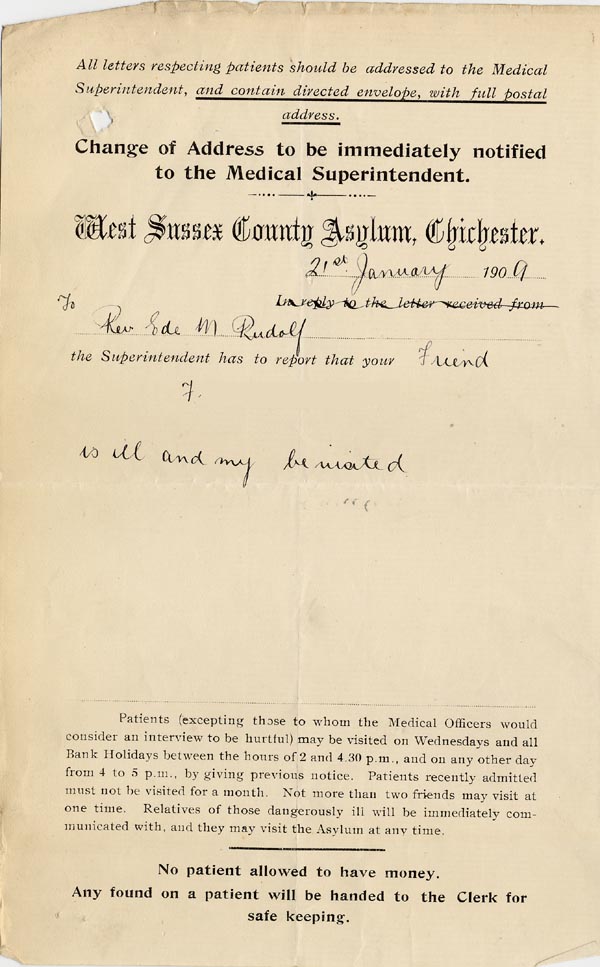 All letters respecting patients should be addressed to the Medical
Superintendent, and contain directed envelope, with full postal
address.
Change of Address to be immediately notified
to the Medical Superintendent.
West Sussex County Asylum, Chichester.
21st January 1909
In reply to the letter received from
To
Rev Ede M Rudolf
the Superintendent has to report that your Friend
F.
is ill and my be visited
Patients (excepting those to whom the Medical Officers would
consider an interview to be hurtful) may be visited on Wednesdays and all
Bank Holidays between the hours of 2 and 4.30 p.m., and on any other day
from 4 to 5 p.m., by giving previous notice. Patients recently admitted
must not be visited for a month. Not more than two friends may visit at
one time. Relatives of those dangerously ill will be immediately com-
municated with, and they may visit the Asylum at any time.
No patient allowed to have money.
Any found on a patient will be handed to the Clerk for
safe keeping.